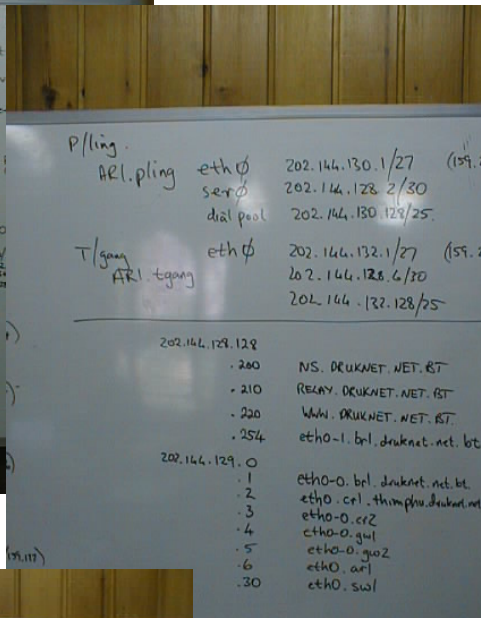 P/ling.
AR1.pling ethØ 202.144.130.1/27 (159.2
serØ 202.144.128.2/30
dial pool 202.144.130.128/25.
T/gang ethØ 202.144.132.1/27 (159.2
AR1.tgang 202.144.128.6/30
202.144.132.128/25
202.144.128.128
.200 NS.DRUKNET.NET.BT
.210 RELAY.DRUKNET.NET.BT
.220 WWW.DRUKNET.NET.BT.
.254 eth0-1.br1.druknet.net.bt
202.144.129.0
.1 eth0-0.br1.druknet.net.bt.
.2 eth0.cr1.thimphu.druknet.net
.3 eth0-0.cr2
.4 eth0-0.gw1
.5 eth0-0.gw2
.6 eth0.ar1
.30 eth0.sw1